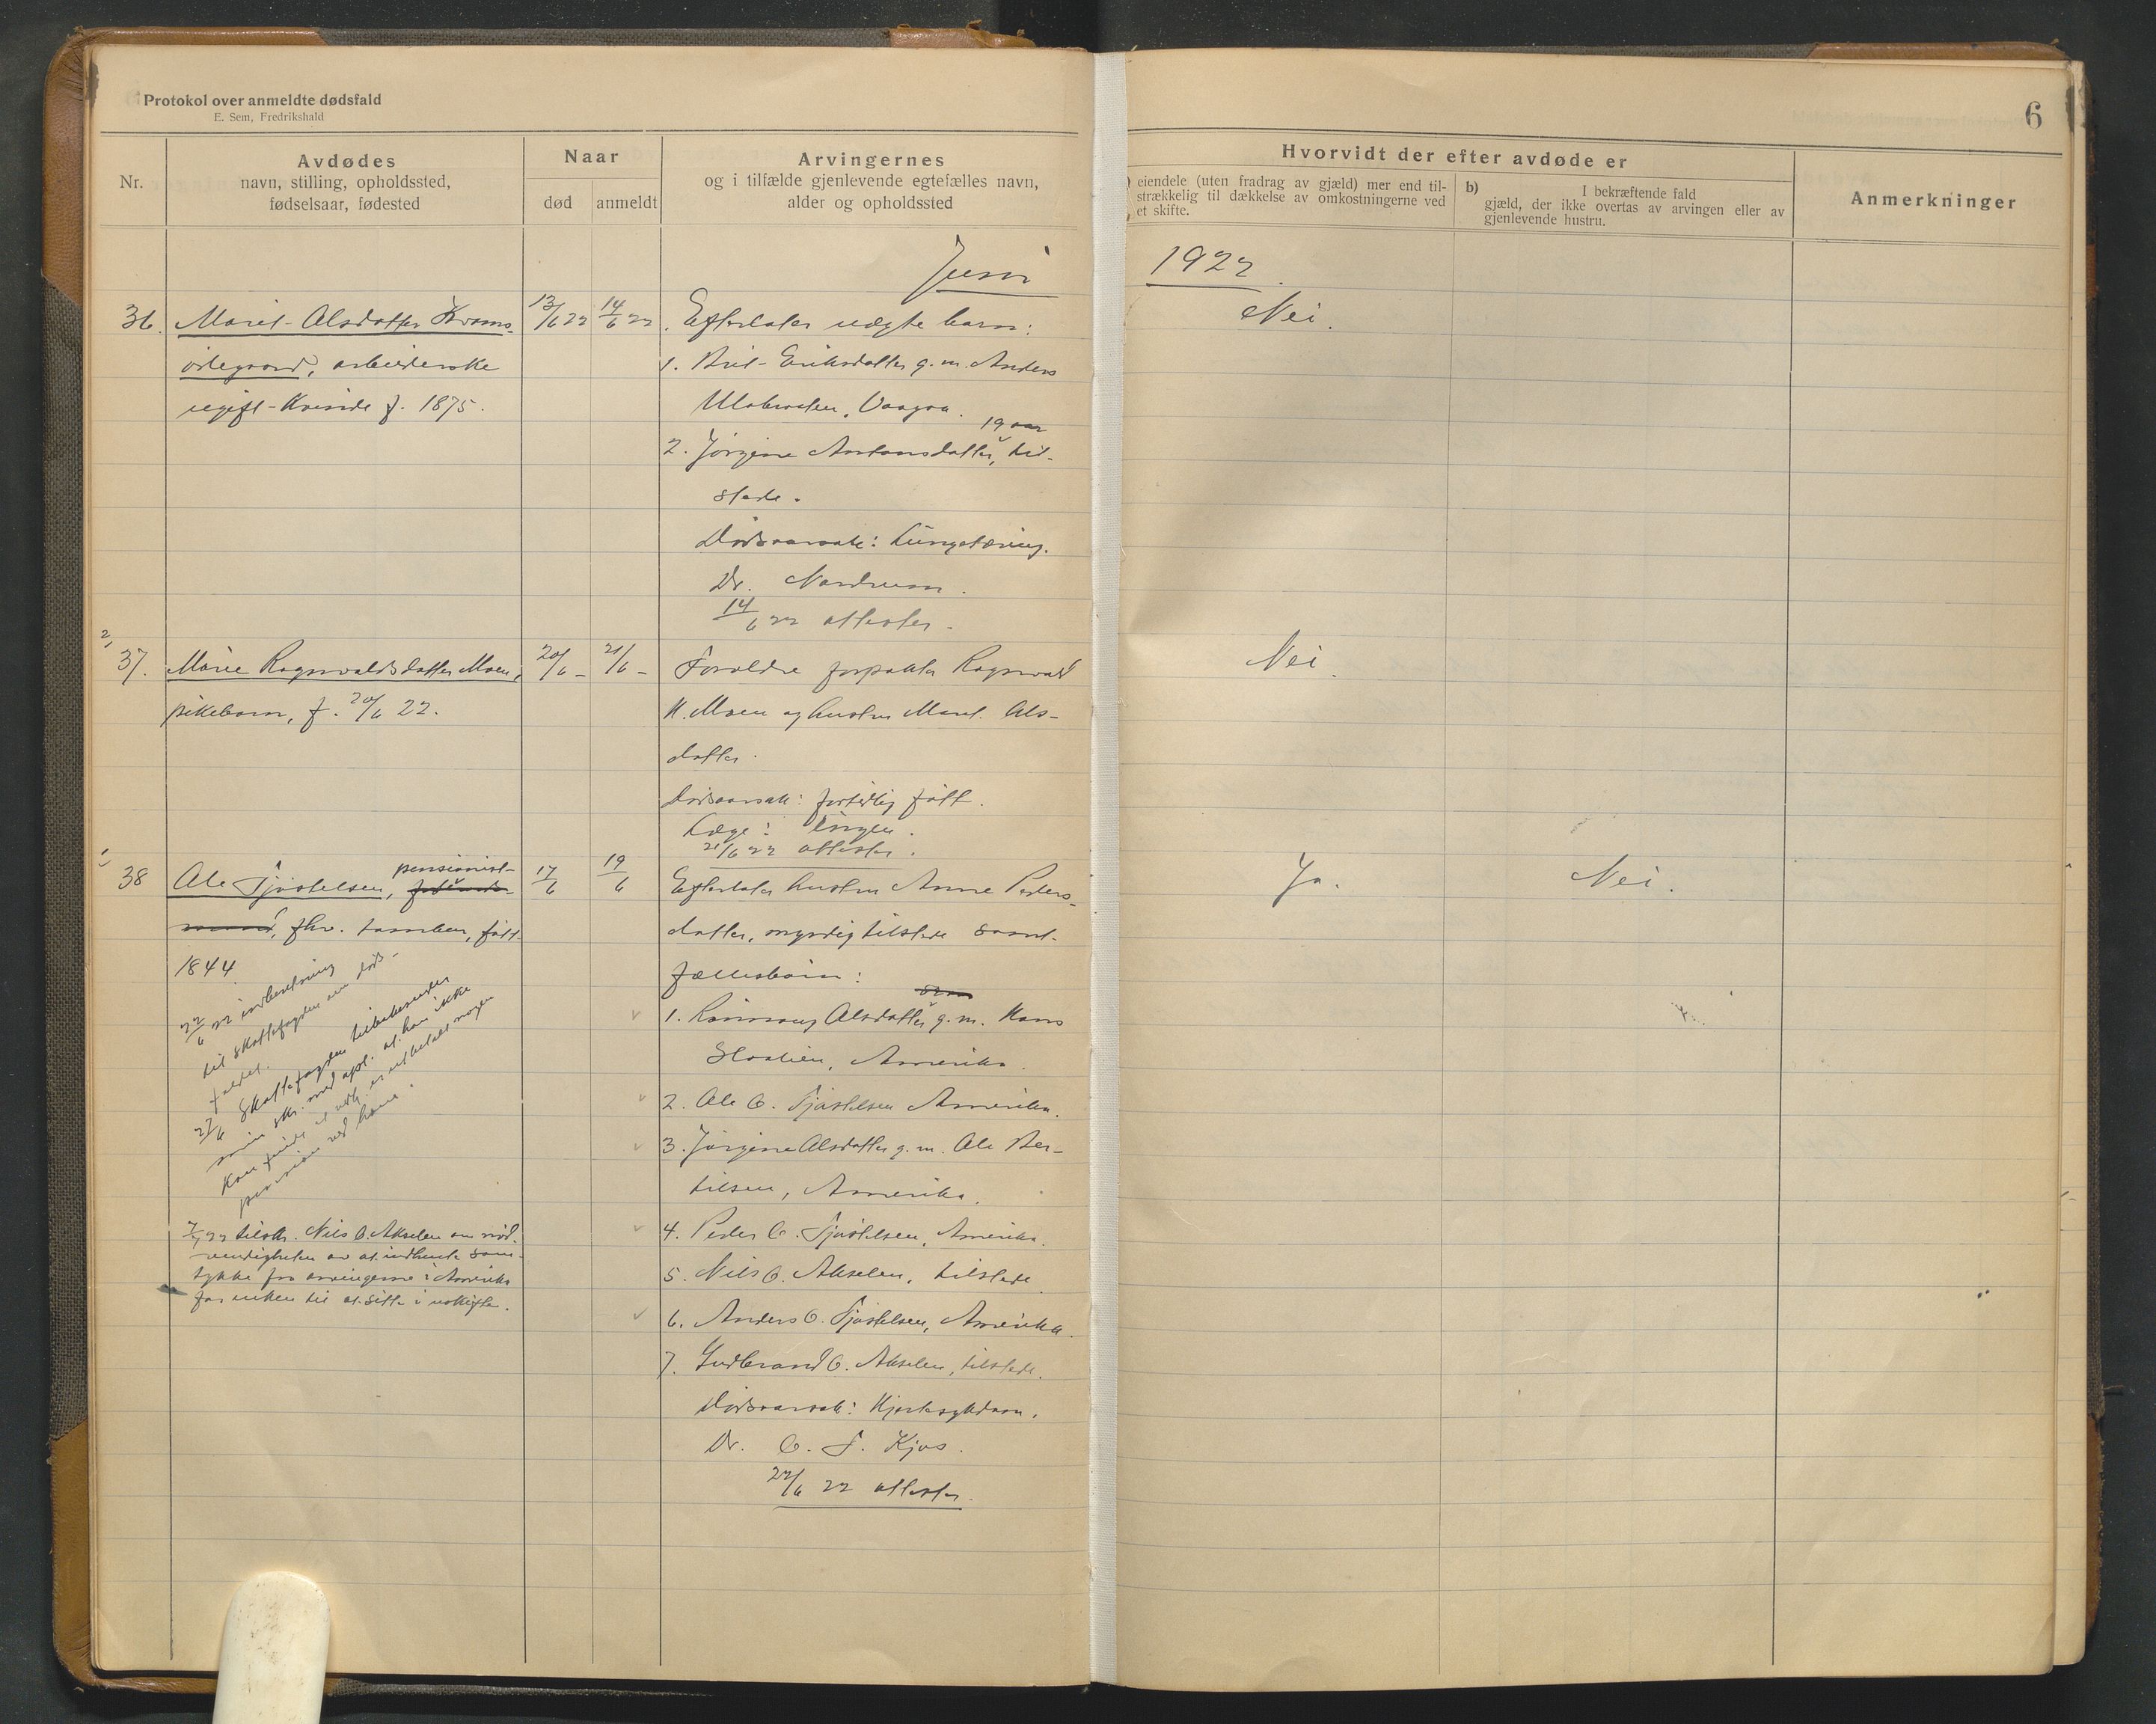 Protokol over anmeldte dødsfald
E. Sem, Fredrikshald
6
Nr.
Avdødes
navn, stilling, opholdssted,
fødselsaar, fødested
Naar
død
anmeldt
Arvingernes
og i tilfælde gjenlevende egtefælles navn,
alder og opholdssted
Hvorvidt der efter avdøde er
eiendele (uten fradrag av gjæld) mer end til-
strækkelig til dækkelse av omkostningerne ved
et skifte.
b) I bekræftende fald
gjæld, der ikke overtas av arvingen eller av
gjenlevende hustru.
Anmerkninger
Juni 1922
36. Marit Olsdatter Kvams-
ødegaard, arbeiderske
ugift Kvinde f. 1875.
13/6 22
14/6 22
Efterlater uægte barn:
1. Brit Eriksdatter g.m. Anders
Ulabraaten, Vaagaa.
19 aar
2. Jørgine Antonsdatter, til-
stede.
Dødsaarsak: Lungetæring.
Dr. Nordrum.
14/6 22 attester.
Nei.
37. Marie Ragnvaldsdatter Moen,
pikebarn, f. 20/6 22.
20/6 -
21/6 -
Forældre forpakter Ragnvald
K. Moen og hustru Marit Ols-
datter.
Dødsaarsak: fortidlig født.
Læge: Ingen.
21/6 22 attester.
Nei.
38 Ole Tjøstelsen, pensionist
fhv. tømmer, født
1844
17/6
19/6
Efterlater hustru Anne Peders-
datter, myndig tilstede samt
fællesbørn:
1. Rønnaug Olsdatter g.m. Hans
Slaalien, Amerika.
2. Ole O. Tjøstelsen Amerika.
3. Jørgine Olsdatter g.m. Ole Ber-
tilsen, Amerika.
4. Peder O. Tjøstelsen, Amerika.
5. Nils O. Akselen, tilstede
6. Anders O. Tjøstelsen, Amerika.
7. Gudbrand O. Akselen, tilstede.
Dødsaarsak: Hjertesykdom.
Dr. O. T. Kjos.
22/6 22 attester.
Ja.
Nei.
22/6 22 indberetning
til skattefogden om døds-
faldet.
27/6 Skattefogden tilbakesender
min skr. med opl. at han ikke
kan finde at være utbetalt nogen
pension ved ham.
7/7 22 tilskr. Nils O. Akselen om nød-
vendigheten av at indhente sam-
tykke fra arvingerne i Amerika
for enken til at sitte i uskifte.